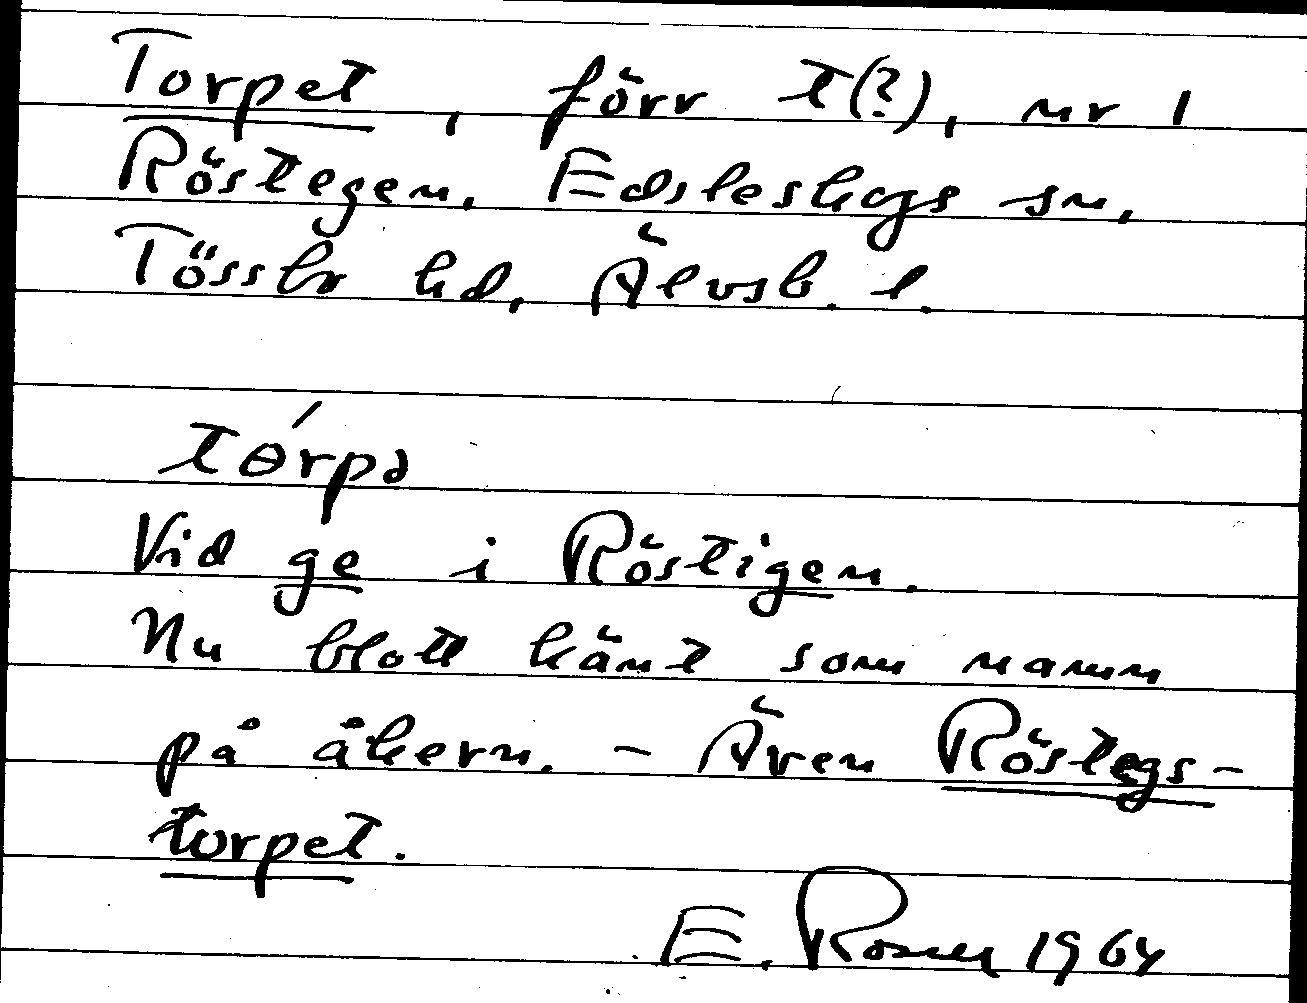 Torpet, förr t(?), nr 1
Röstegen, Edsleskogs sn,
Tössbo hd, Älvsb. l.
tɵ́rpə
Vid ge i Röstigen.
Nu blott känt som namn
på åkern. – Även Röstegs-
torpet.
E. Rosell 1964